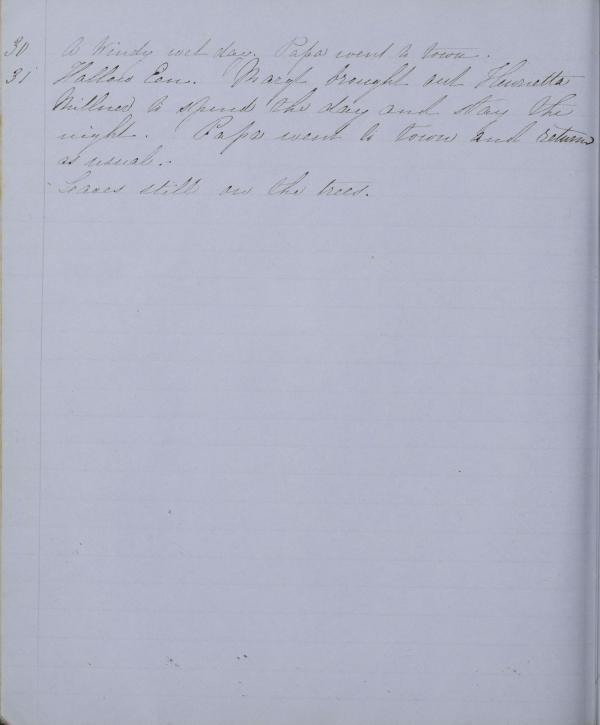 30 A Windy wet day. Papa went to town.
31 Hallow Een. Mary brought out Henrietta
to spend the day and stay the
night. Papa went to town and return
as usual.
Leaves still on the trees.